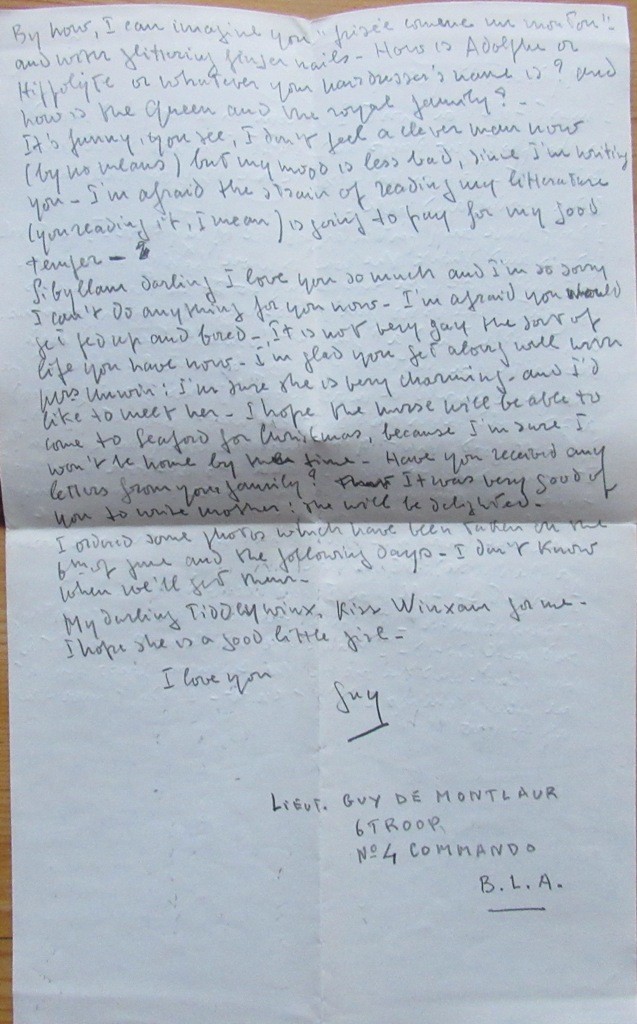 By now, I can imagine you "frisée comme un mouton"
and with glittering finger nails - How is Adolphe or
Hippolyte or whatever your hairdresser's name is? and
how is the Queen and the royal family? -
It's funny, you see, I don't feel a clever man now
(by no means) but my mood is less bad, since I'm writing
you - I'm afraid the strain of reading my litterature
(you reading it, I mean) is going to pay for my good
temper -
Sibyllam darling I love you so much and I'm so sorry
I can't do anything for you now - I'm afraid you would
get fed up and bored - It is not very gay the sort of
life you have now - I'm glad you get along well with
Mrs Unwin: I'm sure she is very charming - and I'd
like to meet her - I hope the nurse will be able to
come to Seaford for Christmas, because I'm sure I
won't be home by time - Have you received any
letters from your family? It was very good of
you to write mother: she will be delighted -
I ordered some photos which have been taken on the
6th of June and the following days - I don't know
when we'll get them -
My darling Tiddlywinx, Kiss Winxam for me -
I hope she is a good little girl -
I love you
Guy
LIEUT. GUY DE MONTLAUR
6 TROOP
No 4 COMMANDO
B.L.A.